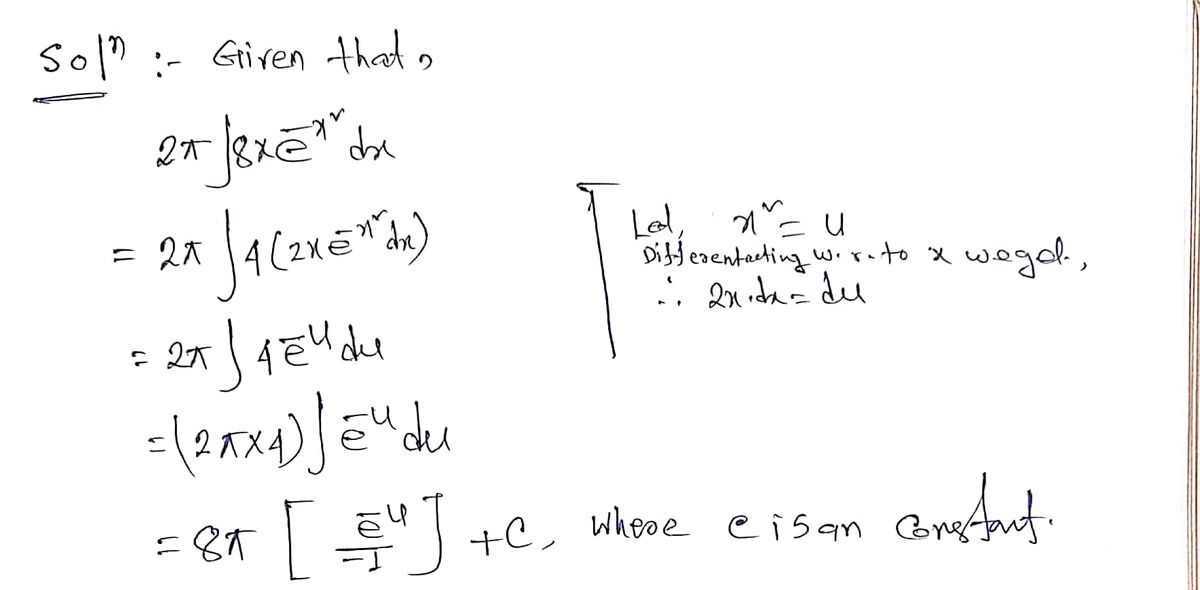 Solⁿ :- Given that,
2π ∫8xe^{-x²} dx
= 2π ∫4(2xe^{-x²} dx)
Let, x² = u
Differentiating w.r.to x we get,
∴ 2x.dx = du
= 2π ∫ 4e^{-u} du
= (2π×4) ∫ e^{-u} du
= 8π [ e^{-u}/-1 ] + C, where c is an constant.